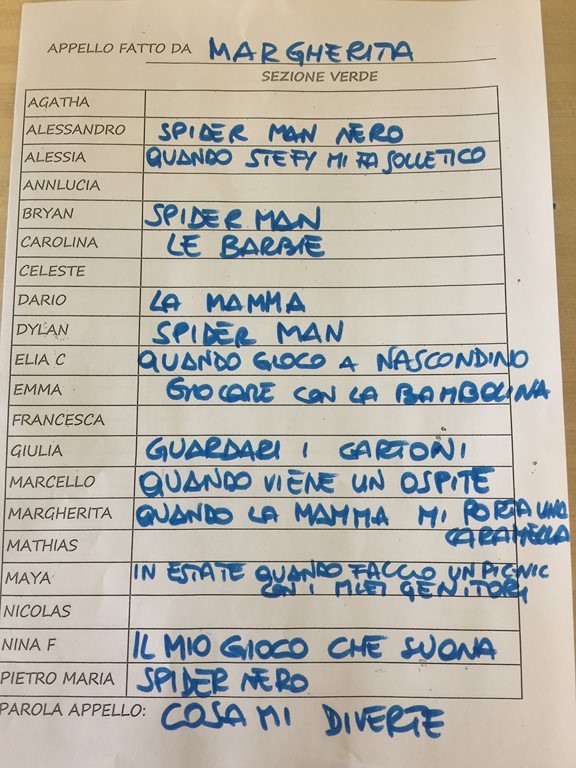 APPELLO FATTO DA MARGHERITA
SEZIONE VERDE
AGATHA
ALESSANDRO SPIDER MAN NERO
ALESSIA QUANDO STEFY MI FA SOLLETICO
ANNLUCIA
BRYAN SPIDER MAN
CAROLINA LE BARBIE
CELESTE
DARIO LA MAMMA
DYLAN SPIDER MAN
ELIA C QUANDO GIOCO A NASCONDINO
EMMA GIOCARE CON LA BAMBOLINA
FRANCESCA
GIULIA GUARDARI I CARTONI
MARCELLO QUANDO VIENE UN OSPITE
MARGHERITA QUANDO LA MAMMA MI PORTA UNA
CARAMELLA
MATHIAS
MAYA IN ESTATE QUANDO FACCIO UN PIC-NIC
CON I MIEI GENITORI
NICOLAS
NINA F IL MIO GIOCO CHE SUONA
PIETRO MARIA SPIDER NERO
PAROLA APPELLO: COSA MI DIVERTE